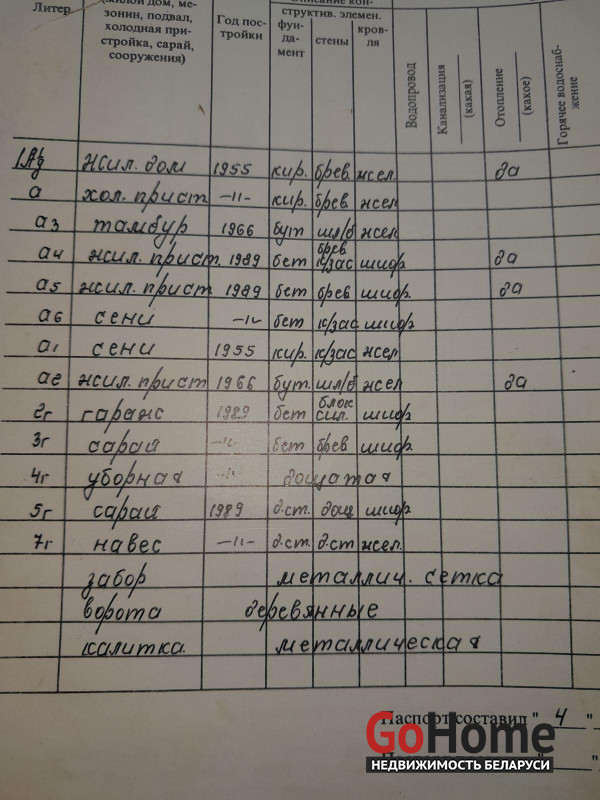 Литер
(жилой дом, ме-
зонин, подвал,
холодная при-
стройка, сарай,
сооружения)
Год пос-
тройки
Описание кон-
структив. элемен.
фун-
да-
мент
стены
кров-
ля
Водопровод
Канализация
(какая)
Отопление
(какое)
Горячее водоснаб-
жение
жил. дом 1955 кир. брев жел. да
а хол. прист -"- кир. брев жел
а3 тамбур 1966 бут шл/б жел
а4 жил. прист. 1989 бет брев к/зас шиф. да
а5 жил. прист. 1989 бет брев шиф. да
а6 сени -"- бет к/зас шиф.
а1 сени 1955 кир. к/зас жел
а2 жил. прист 1966 бут. шл/б жел да
2г гараж 1989 бет блок сил. шиф
3г сарай -"- бет брев шиф.
4г уборная -"- дощатая
5г сарай 1989 д.ст. дощ шиф
7г навес -"- д.ст. д.ст жел.
забор металлич. сетка
ворота деревянные
калитка. металлическая
Паспорт составил " 4 "
GoHome
НЕДВИЖИМОСТЬ БЕЛАРУСИ